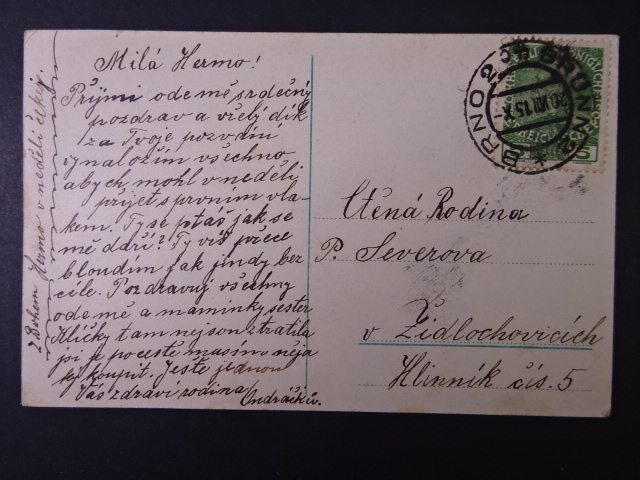 Milá Hermo!
Přijmi odemě srdečný
pozdrav a vřelý dík
za Tvoje pozvání
vynaložím všechno
abych mohl v neděli
přijet s prvním vla-
kem. Ty se ptáš jak se
mě daří? Ty víš přece
bloudím jak jindy bez
cíle. Pozdravuj všechny
odemě a maminky sester
Klíčky tam nejson ztratila
si je pocestě musíme něja
ký koupit. Ještě jednou
Vás zdraví rodina Ondráčkův.
S Bohem Hermo v neděli čekej.
BRNO 2 BRÜNN 2
20.VIII.15
5
Ctěná Rodina
P. Severova
v Židlochovicích
Hlinník čís. 5